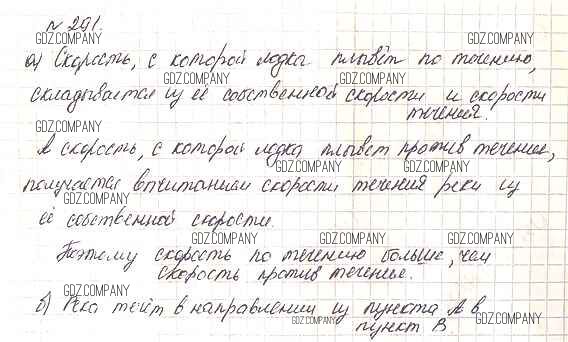 № 291.
GDZ.COMPANY GDZ.COMPANY
а) Скорость, с которой лодка плывёт по течению,
GDZ.COMPANY GDZ.COMPANY
складывается из её собственной скорости и скорости
течения.
GDZ.COMPANY
А скорость, с которой лодка плывет против течение,
GDZ.COMPANY GDZ.COMPANY
получается вычитанием скорости течения реки из
GDZ.COMPANY
её собственной скорости.
GDZ.COMPANY GDZ.COMPANY GDZ.COMPANY
Поэтому скорость по течению больше, чем
скорость против течение.
GDZ.COMPANY
б) Река течёт в направлении из пункта А в
GDZ.COMPANY GDZ.COMPANY
пункт В.